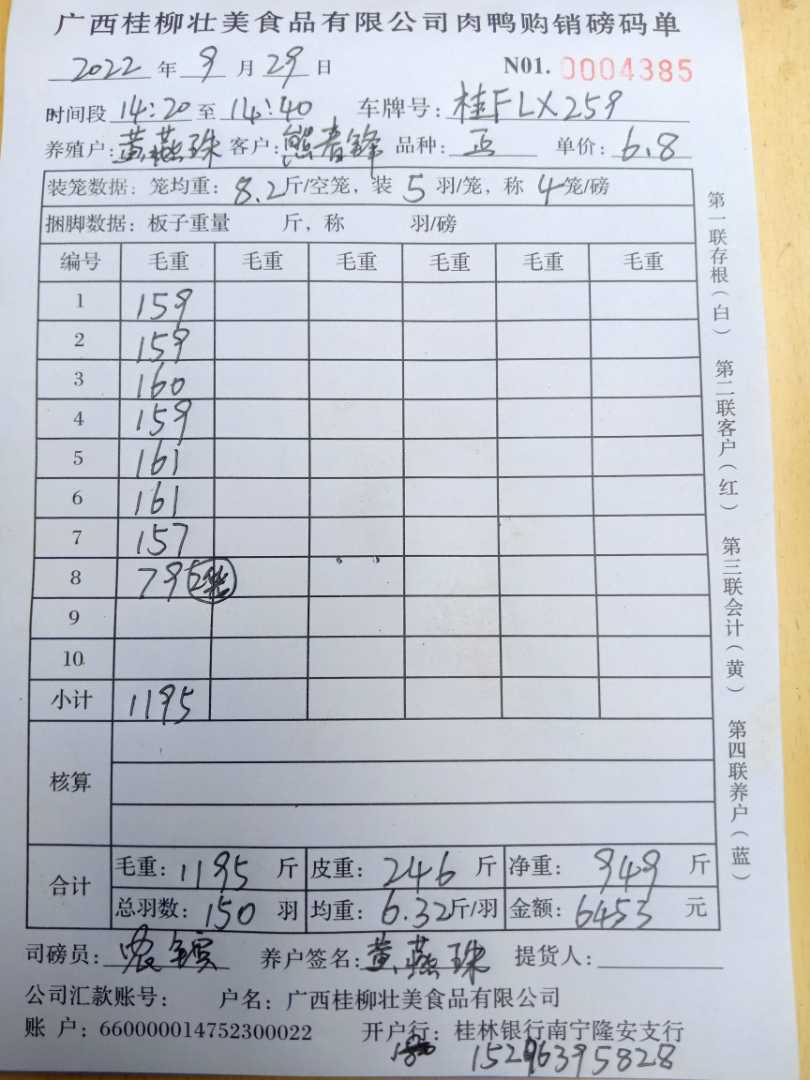 广西桂柳壮美食品有限公司肉鸭购销磅码单
2022 年 9 月 29 日 N01. 0004385
时间段 14:20 至 14:40 车牌号: 桂FLX259
养殖户: 黄燕珠 客户: 熊青锋 品种: 正 单价: 6.8
装笼数据: 笼均重: 8.2 斤/空笼, 装 5 羽/笼, 称 4 笼/磅
捆脚数据: 板子重量 斤, 称 羽/磅
编号 毛重 毛重 毛重 毛重 毛重 毛重
1 159
2 159
3 160
4 159
5 161
6 161
7 157
8 79 2笼
9
10
小计 1195
核算
合计 毛重: 1195 斤 皮重: 246 斤 净重: 949 斤
总羽数: 150 羽 均重: 6.32 斤/羽 金额: 6453 元
司磅员: 农 养户签名: 黄燕珠 提货人:
公司汇款账号: 户名: 广西桂柳壮美食品有限公司
账 户: 660000014752300022 开户行: 桂林银行南宁隆安支行
15296395828
第一联存根(白) 第二联客户(红) 第三联会计(黄) 第四联养户(蓝)